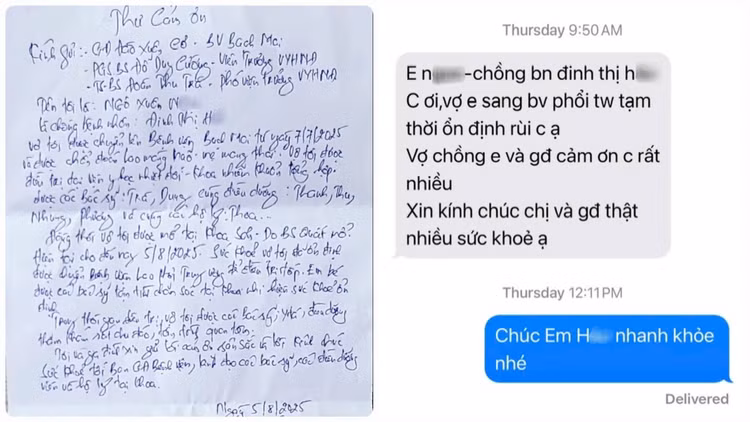 Thư Cảm ơn
Kính gửi: - GĐ Đào Xuân Cơ - BV Bạch Mai
- PGS BS Đỗ Duy Cường - Viện Trưởng VYHNĐ
- TS.BS Đoàn Thu Trà - Phó viện Trưởng VYHNĐ
Tên tôi là: Ngô Xuân N
Là chồng bệnh nhân: Đinh Thị H
vợ tôi được chuyển lên Bệnh viện Bạch Mai từ ngày 7/7/2025
và được chẩn đoán lao màng não - mẹ mang thai. Vợ tôi được
điều trị tại viện y học nhiệt đới - khoa nhiễm khuẩn tổng hợp.
được các bác sỹ: Trà, Dung, cùng điều dưỡng: Thanh, Thu,
Nhung, Phương và cùng các hộ lý: Thoa...
Đồng thời vợ tôi được mổ tại khoa Sản - Do BS mổ.
Hiện tại cho đến nay 5/8/2025. Sức khoẻ vợ tôi đã ổn định
được chuyển Bệnh viện Lao Trung ương để điều trị tiếp. Em bé
được các bác sỹ chăm sóc tại khoa nhi hiện sức khoẻ ổn
định
Trong thời gian điều trị, vợ tôi được các bác sỹ, y tá, điều dưỡng
thăm khám rất chu đáo, tận tình quan tâm.
Tôi và gia đình xin gửi lời cảm ơn sâu sắc và lời kính chúc
sức khoẻ tới Ban GĐ Bệnh viện, lãnh đạo các bác sỹ, các điều dưỡng
viên và hộ lý tại khoa.
Ngày 5/8/2025
Thursday 9:50 AM
E n -chồng bn đinh thị h
C ơi,vợ e sang bv phổi tw tạm
thời ổn định rùi c ạ
Vợ chồng e và gđ cảm ơn c rất
nhiều
Xin kính chúc chị và gđ thật
nhiều sức khoẻ ạ
Thursday 12:11 PM
Chúc Em H nhanh khỏe
nhé
Delivered